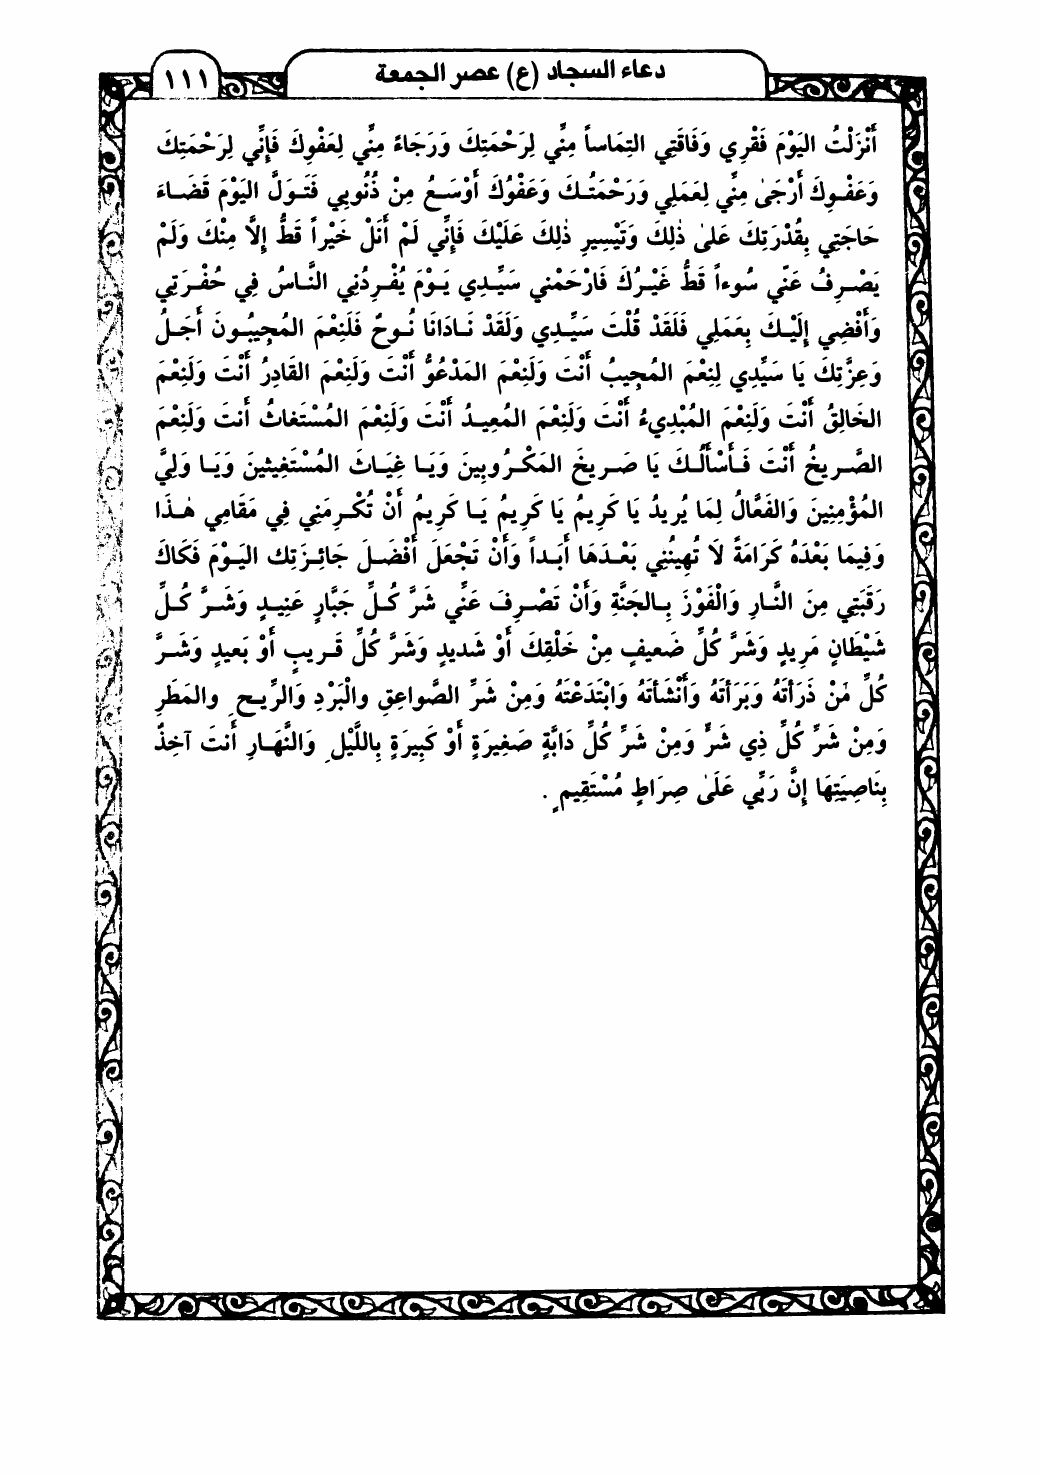 دعاء السجاد (ع) عصر الجمعة
١١١
أَنْزَلْتُ اليَوْمَ فَقْرِي وَفَاقَتِي التِمَاساً مِنِّي لِرَحْمَتِكَ وَرَجَاءً مِنِّي لِعَفْوِكَ فَإِنِّي لِرَحْمَتِكَ
وَعَفْوِكَ أَرْجَىٰ مِنِّي لِعَمَلِي وَرَحْمَتُكَ وَعَفْوُكَ أَوْسَعُ مِنْ ذُنُوبِي فَتَوَلَّ اليَوْمَ قَضَاءَ
حَاجَتِي بِقُدْرَتِكَ عَلىٰ ذٰلِكَ وَتَيْسِيرِ ذٰلِكَ عَلَيْكَ فَإِنِّي لَمْ أَنَلْ خَيْراً قَطُّ إِلاَّ مِنْكَ وَلَمْ
يَصْرِفُ عَنِّي سُوءاً قَطُّ غَيْرُكَ فَارْحَمْني سَيِّدِي يَوْمَ يُفْرِدُنِي النَّاسُ فِي حُفْرَتِي
وَأَفْضِي إِلَيْكَ بِعَمَلِي فَلَقَدْ قُلْتَ سَيِّدِي وَلَقَدْ نَادَانَا نُوحٌ فَلَنِعْمَ المُجِيبُونَ أَجَلُ
وَعِزَّتِكَ يَا سَيِّدِي لِنِعْمَ المُجِيبُ أَنْتَ وَلَنِعْمَ المَدْعُوُّ أَنْتَ وَلَنِعْمَ القَادِرُ أَنْتَ وَلَنِعْمَ
الخَالِقُ أَنْتَ وَلَنِعْمَ المُبْدِيءُ أَنْتَ وَلَنِعْمَ المُعِيدُ أَنْتَ وَلَنِعْمَ المُسْتَغاثُ أَنتَ وَلَنِعْمَ
الصَّرِيخُ أَنْتَ فَأَسْأَلُكَ يَا صَرِيخَ المَكْرُوبِينَ وَيَا غِيَاثَ المُسْتَغِيثينَ وَيَا وَلِيَّ
المُؤْمِنِينَ وَالفَعَّالُ لِمَا يُرِيدُ يَا كَرِيمُ يَا كَرِيمُ يَا كَرِيمُ أَنْ تُكْرِمَنِي فِي مَقَامِي هٰذَا
وَفِيمَا بَعْدَهُ كَرَامَةً لَا تُهِينُنِي بَعْدَهَا أَبَداً وَأَنْ تَجْعَلَ أَفْضَلَ جَائِزَتِك اليَوْمَ فَكَاكَ
رَقَبَتِي مِنَ النَّارِ وَالْفَوْزَ بِالجَنَّةِ وَأَنْ تَصْرِفَ عَنِّي شَرَّ كُلِّ جَبَّارٍ عَنِيدٍ وَشَرَّ كُلِّ
شَيْطَانٍ مَرِيدٍ وَشَرَّ كُلِّ ضَعيفٍ مِنْ خَلْقِكَ أَوْ شَديدٍ وَشَرَّ كُلِّ قَرِيبٍ أَوْ بَعيدٍ وَشَرَّ
كُلِّ مَنْ ذَرَأتَهُ وَبَرَأتَهُ وَأَنْشَأتَهُ وَابْتَدَعْتَهُ وَمِنْ شَرِّ الصَّواعِقِ والْبَرْدِ وَالرِّيحِ والمَطَرِ
وَمِنْ شَرِّ كُلِّ ذِي شَرٍّ وَمِنْ شَرِّ كُلِّ دَابَّةٍ صَغِيرَةٍ أَوْ كَبِيرَةٍ بِاللَّيْلِ وَالنَّهَارِ أَنتَ آخِذٌ
بِنَاصِيَتِهَا إِنَّ رَبِّي عَلَىٰ صِرَاطٍ مُسْتَقِيمٍ .